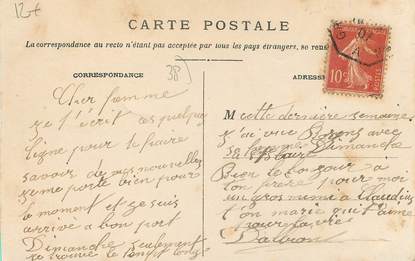 12€
CARTE POSTALE
La correspondance au recto n'étant pas acceptée par tous les pays étrangers, se
CORRESPONDANCE
38
ADRESS
10c
Cher femme
je t'écrit ces quelque
ligne pour te faire
savoir de mes nouvelles
je me porte bien pour
le moment et je suis
arrivé a bon port
Dimanche seulement
je trouve le temps long
M cette dernière semaine
j'ai vue avec
sa femme Dimanche
Bien le bonjour a
ton père pour moi
un gros mimi a Claudius
ton marie qui t'aime
pour la vie